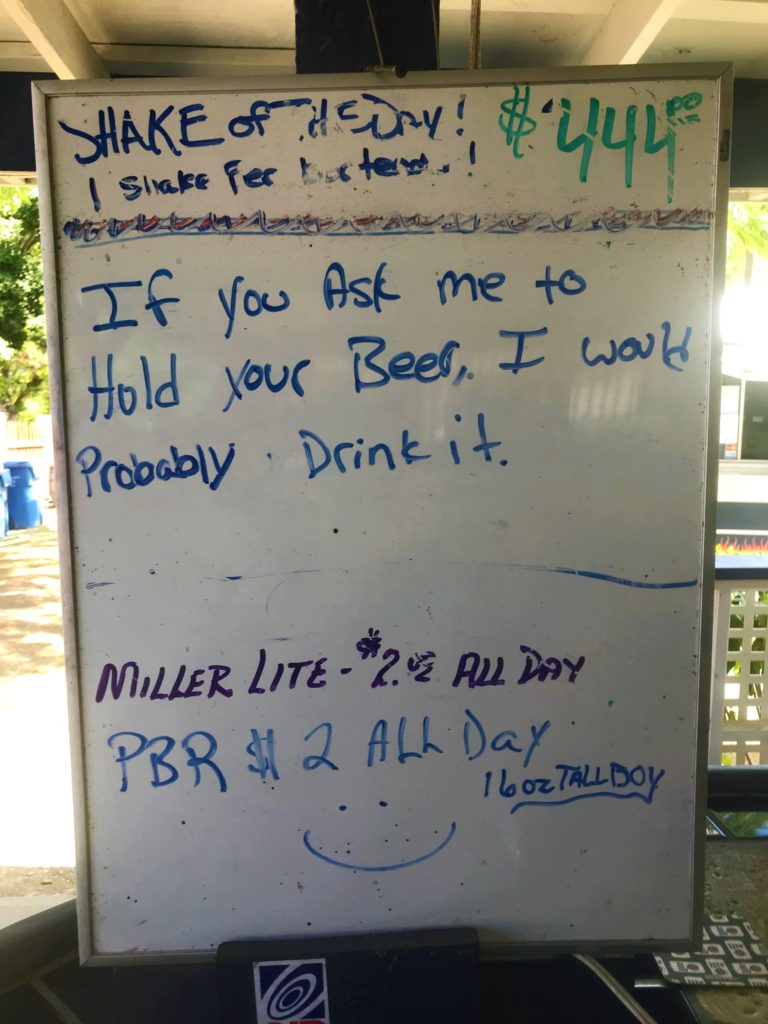 SHAKE of THE DAY! $444.00
1 Shake Per
If you Ask me to
Hold your Beer, I would
Probably Drink it.
MILLER LITE - $2. ALL DAY
PBR $2 ALL Day
16oz TALL BOY